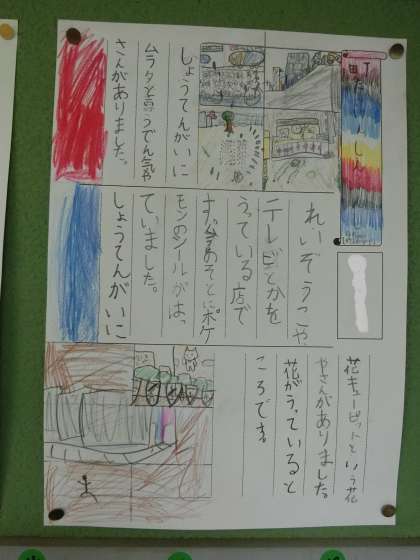 しょうてんがいに
ムラタと言うでん気や
さんがありました。
れいぞうこや
テレビとかを
うっている店で
す。
のそとにポケ
モンのシールがはっ
ていました。
しょうてんがいに
花キューピットという花
やさんがありました。
花がうっていると
ころです。